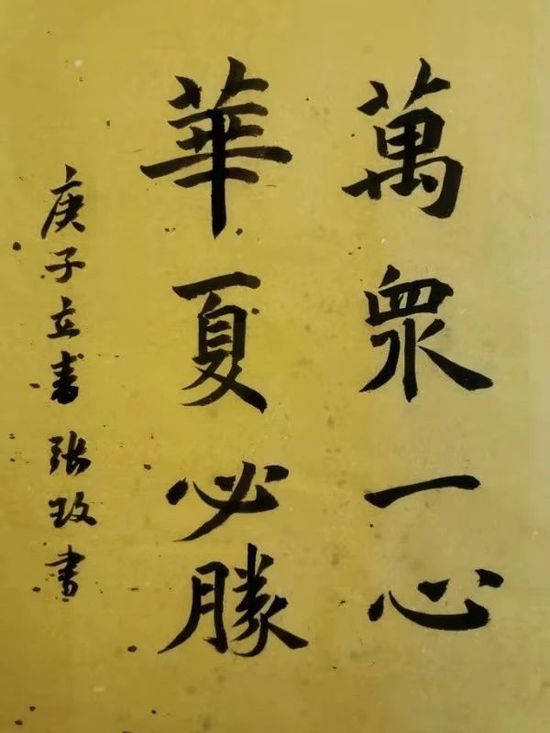 萬眾一心
華夏必勝
庚子立春 张玫書